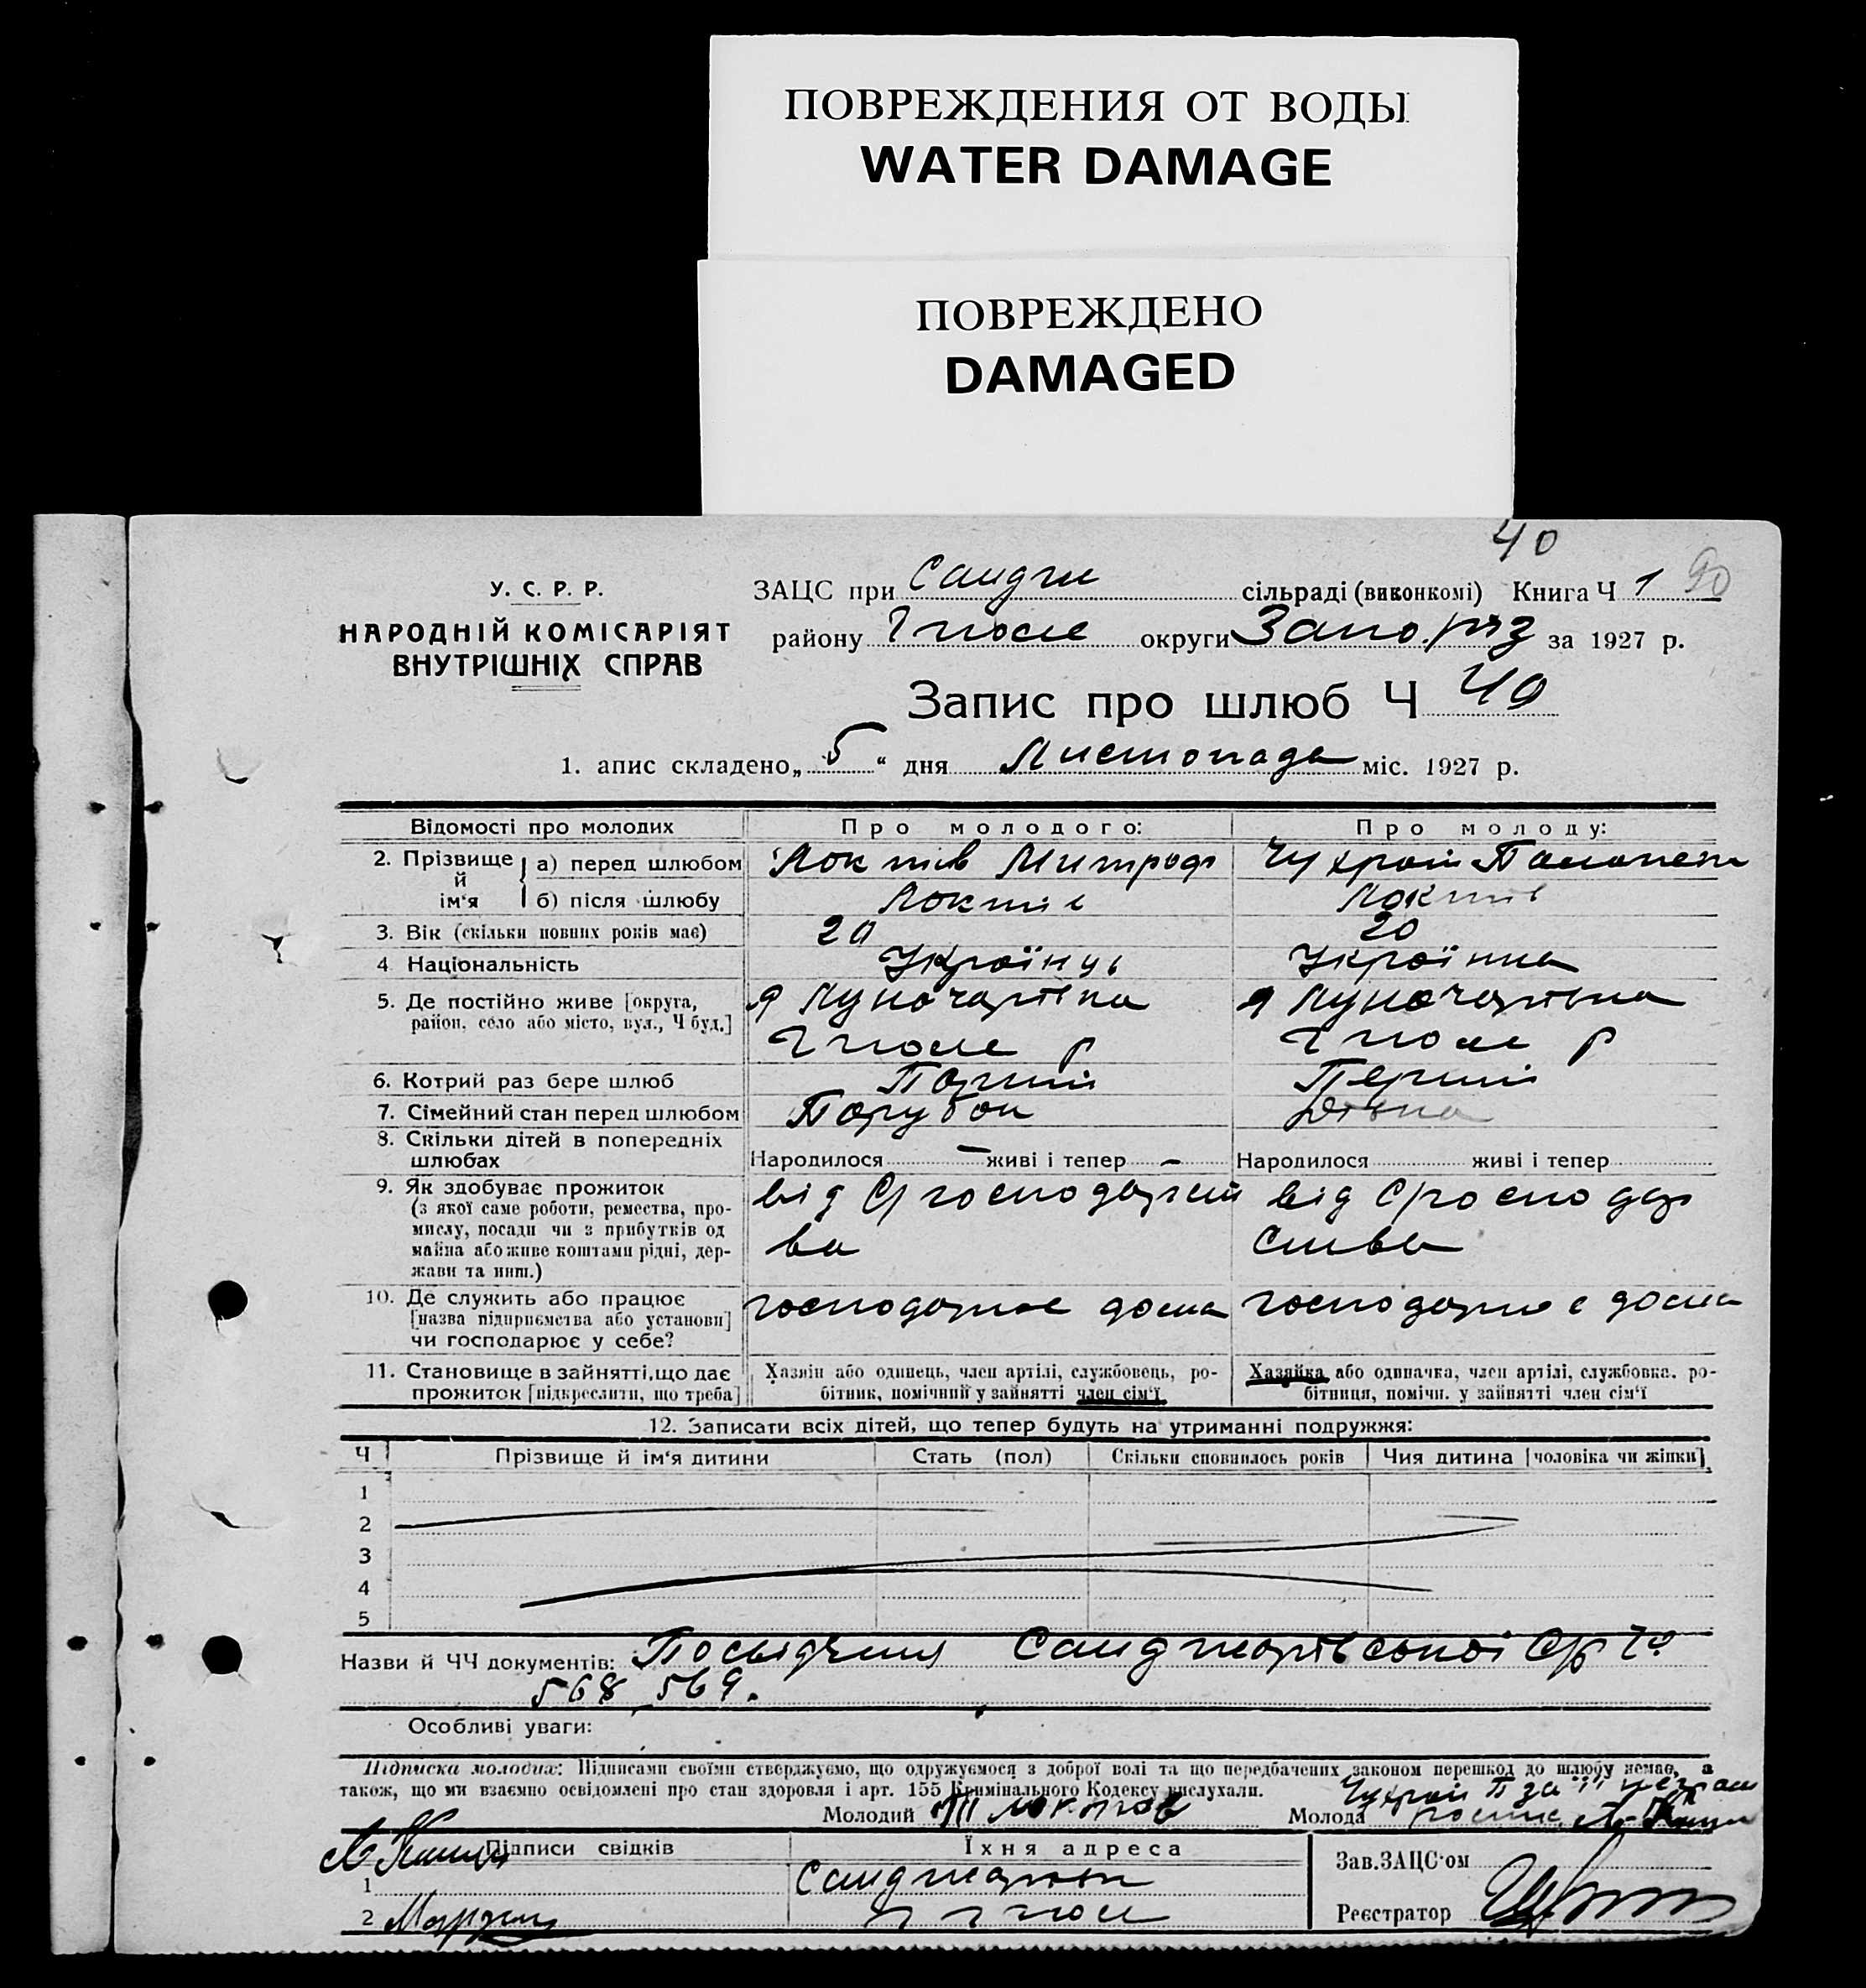 ПОВРЕЖДЕНИЯ ОТ ВОДЫ
WATER DAMAGE
ПОВРЕЖДЕНО
DAMAGED
40
У. С. Р. Р.
НАРОДНІЙ КОМІСАРІЯТ
ВНУТРІШНІХ СПРАВ
ЗАЦС при сільраді (виконкомі) Книга Ч 1 90
району Гполе округи за 1927 р.
Запис про шлюб Ч 40
1. апис складено „ 5 “ дня Листопада міс. 1927 р.
Відомості про молодих Про молодого: Про молоду:
2. Прізвище й ім'я а) перед шлюбом Локтів Митроф Чухрай
б) після шлюбу Локтів Локтів
3. Вік (скільки повних років має) 20 20
4 Національність Українць Українка
5. Де постійно живе [округа, район, село або місто, вул., Ч буд.] Луначарівка Луначарівка
Гполе р Гполе р
6. Котрий раз бере шлюб Перший Перший
7. Сімейний стан перед шлюбом Парубок Дівка
8. Скільки дітей в попередніх шлюбах Народилося — живі і тепер — Народилося живі і тепер
9. Як здобуває прожиток від С/господарст від С/господар
(з якої саме роботи, ремества, промислу, посади чи з прибутків од майна або живе коштами рідні, держави та инш.) ва ства
10. Де служить або працює [назва підприємства або установи] чи господарює у себе? господарює дома господарює дома
11. Становище в зайнятті, що дає прожиток [підкреслити, що треба] Хазяїн або одинець, член артілі, службовець, робітник, помічний у зайнятті член сім'ї Хазяйка або одиначка, член артілі, службовка, робітниця, помічн. у зайнятті член сім'ї
12. Записати всіх дітей, що тепер будуть на утриманні подружжя:
Ч Прізвище й ім'я дитини Стать (пол) Скільки сповнилось років Чия дитина [чоловіка чи жінки]
1
2
3
4
5
Назви й ЧЧ документів: Посвідчення С/р
568 569.
Особливі уваги:
Підписка молодих: Підписами своїми стверджуємо, що одружуємося з доброї волі та що передбачених законом перешкод до шлюбу немає, а
також, що ми взаємно освідомлені про стан здоровля і арт. 155 Кримінального Кодексу вислухали. Чухрай П за її
Молодий Молода
Підписи свідків Їхня адреса Зав. ЗАЦС'ом
1
2 Реєстратор